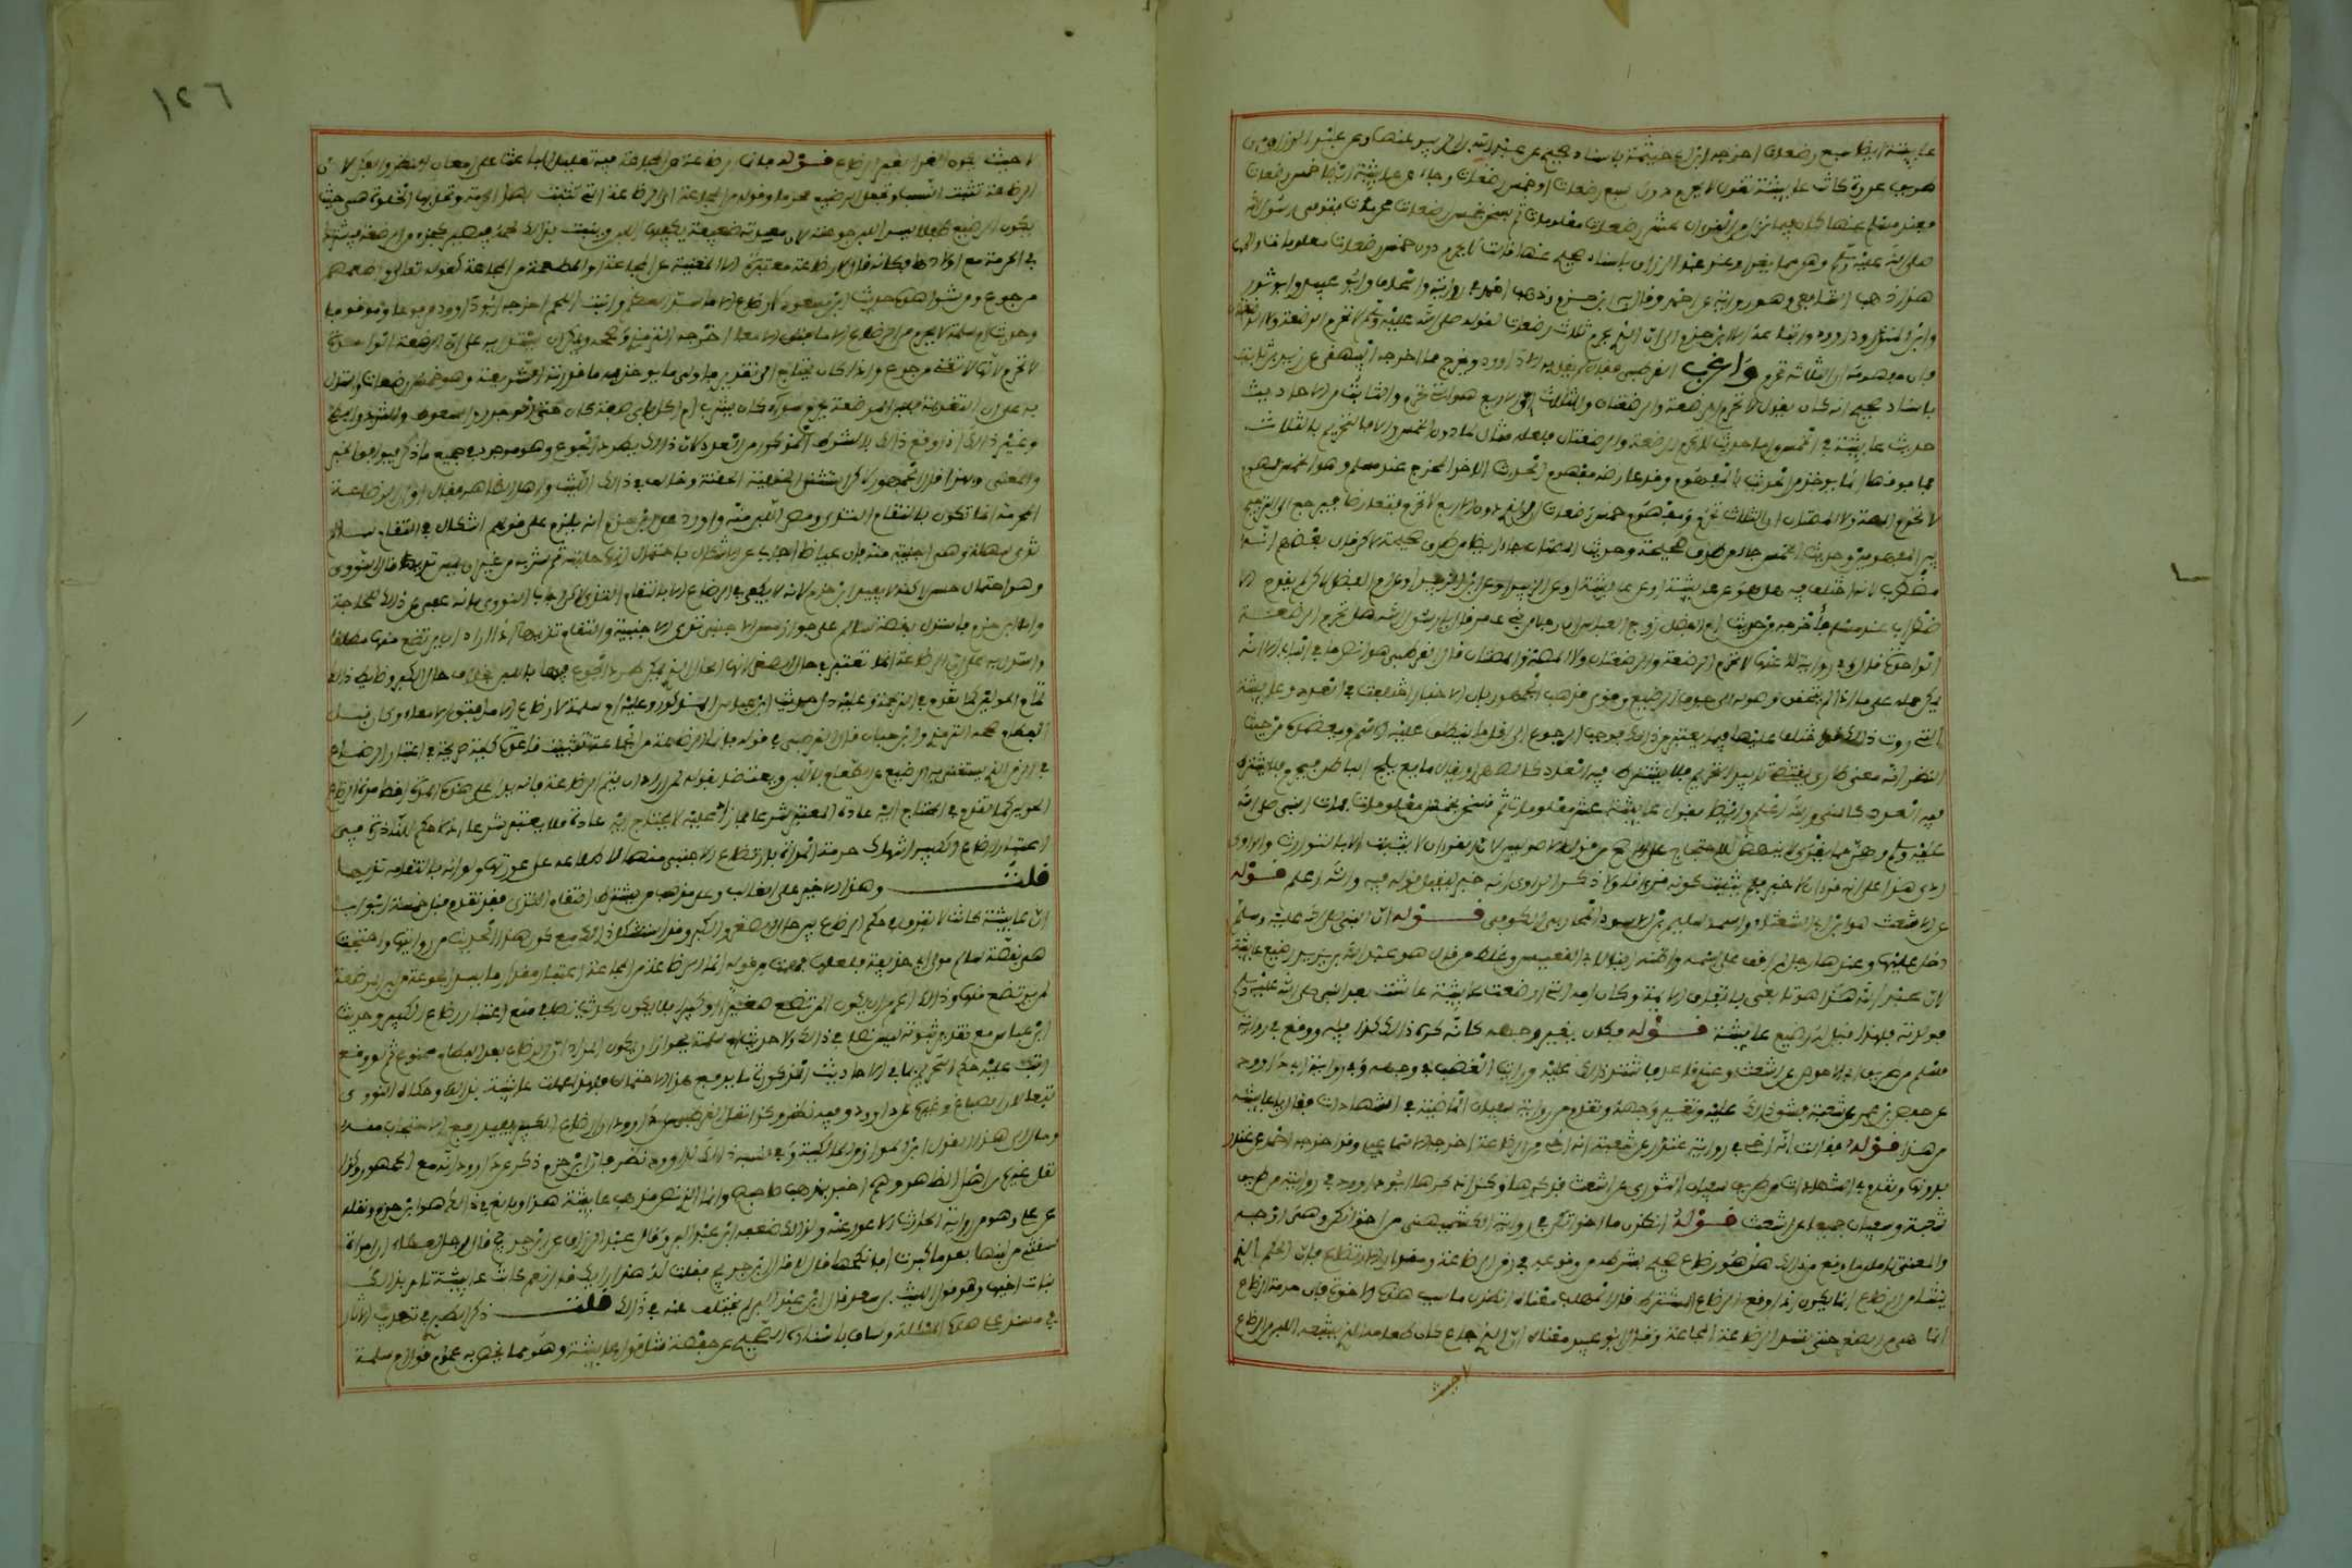 عايشة ايضا سبع رضعات اخرجه ابن ابي خيثمة باسناد صحيح عن عبد الله بن الزبير عنها وعن عبد الرزاق من
طريق عروة كانت عايشة تقول لا يحرم دون سبع رضعات او خمس رضعات وجاء عن عايشة ايضا خمس رضعات
فعند مسلم عنها كان فيما نزل من القرءان عشر رضعات معلومات ثم نسخن بخمس رضعات محرمات فتوفي رسول الله
صلى الله عليه وسلم وهن مما يقرا وعند عبد الرزاق باسناد صحيح عنها قالت لا يحرم دون خمس رضعات معلومات والى
هذا ذهب الشافعي وهو رواية عن احمد وقال به ابن حزم وذهب احمد في رواية واسحاق وابو عبيد وابو ثور
وابن المنذر وداوود واتباعه الا ابن حزم الى ان الذي يحرم ثلاث رضعات لقوله صلى الله عليه وسلم لا تحرم الرضعة ولا الرضعتان
فان مفهومه ان الثلاث تحرم واغرب القرطبي فقال لم يقل به الا داوود ويخرج مما اخرجه البيهقي عن زيد بن ثابت
باسناد صحيح انه كان يقول لا تحرم الرضعة والرضعتان والثلاث وان الاربع هي التي تحرم والثابت من الاحاديث
حديث عايشة في الخمس واما حديث لا تحرم الرضعة والرضعتان فلعله مثال لما دون الخمس والا فالتحريم بالثلاث
فما فوقها انما يوخذ من الحديث بالمفهوم وقد عارضه مفهوم الحديث الاخر المخرج عند مسلم وهو الخمس فمفهوم
لا تحرم المصة ولا المصتان ان الثلاث تحرم ومفهوم خمس رضعات ان الذي دون الاربع لا تحرم فتعارضا فيرجع الى الترجيح
بين المفهومين وحديث الخمس جاء من طرق صحيحة وحديث المصتان جاء ايضا من طرق صحيحة لاكن قال بعضهم انه
مضطرب لانه اختلف فيه هل هو عن عايشة او عن الزبير او عن ابن الزبير او عن ام الفضل لاكن لم يقدح الا
ضطراب عند مسلم فاخرجه من حديث ام الفضل زوج العباس ان رجلا من بني عامر قال يا رسول الله هل تحرم الرضعة
الواحدة قال لا وفي رواية له عنها لا تحرم الرضعة والرضعتان ولا المصة والمصتان قال القرطبي هو انص ما في الباب الا انه
يمكن حمله على ما اذا لم يتحقق وصوله الى جوف الرضيع وقوى مذهب الجمهور بان الاخبار اختلفت في العدد وعايشة
التي روت ذلك قد اختلف عليها فيما يعتبر من ذلك فوجب الرجوع الى اقل ما ينطلق عليه الاسم ويعضده من حيث
النظر انه معنى طارئ يقتضي تابيد التحريم فلا يشترط فيه العدد كالصهر او يقال مايع يلج الباطن فيحرم فلا يشترط
فيه العدد كالمني والله اعلم وايضا فقول عايشة عشر معلومات ثم نسخن بخمس معلومات فمات النبي صلى الله
عليه وسلم وهن مما يقرى لا ينهض للاحتجاج على الاصح من قولي الاصوليين لان القرءان لا يثبت الا بالتواتر والراوي
روى هذا على انه قرءان لا خبر فلم يثبت كونه قرءانا ولا ذكر الراوي انه خبر ليقبل قوله فيه والله اعلم قوله
عن الاشعث هو ابن ابي الشعثاء واسمه سليم بن الاسود المحاربي الكوفي قوله ان النبي صلى الله عليه وسلم
دخل عليها وعندها رجل لم اقف على اسمه واظنه ابنا لابي القعيس وغلط من قال هو عبد الله بن يزيد رضيع عايشة
لان عبد الله هذا هو تابعي باتفاق الايمة وكان امه التي ارضعت عايشة عاشت بعد النبي صلى الله عليه وسلم
فولدته فلهذا قيل له رضيع عايشة قوله فكان تغير وجهه كانه كره ذلك كذا فيه ووقع في رواية
مسلم من طريق ابي الاحوص عن اشعث وعندي رجل قاعد فاشتد ذلك عليه ورايت الغضب في وجهه وفي رواية ابي داوود
عن حفص بن عمر عن شعبة فشق ذلك عليه وتغير وجهه وتقدم من رواية سفيان الماضية في الشهادات فقال يا عايشة
من هذا قوله فقالت انه اخي في رواية غندر عن شعبة انه اخي من الرضاعة اخرجه الاسماعيلي وقد اخرجه احمد عن غندر
بدونها وتقدم في الشهادات من طريق سفيان الثوري عن اشعث فذكرها وكذا ذكرها ابو داوود في روايته من طريق
شعبة وسفيان جميعا عن اشعث قوله انظرن ما اخوانكن في رواية الكشميهني من اخوانكن وهي اوجه
والمعنى تاملن ما وقع من ذلك هل هو رضاع صحيح بشرطه من وقوعه في زمن الرضاعة ومقدار الارتضاع فان الحكم الذي
ينشا من الرضاع انما يكون اذا وقع الرضاع المشترط قال المهلب معناه انظرن ما سبب هذه الاخوة فان حرمة الرضاع
انما هي في الصغر حتى تسد الرضاعة المجاعة وقال ابو عبيد معناه ان الذي جاع كان طعامه الذي يشبعه اللبن من الرضاع
لا حيث
١٢٦
لا حيث يكون الغذا بغير الرضاع قوله فانما الرضاعة من المجاعة فيه تعليل الباعث على امعان النظر والفكر لان
الرضاعة تثبت النسب وتجعل الرضيع محرما وقوله من المجاعة اي الرضاعة التي تثبت بها الحرمة وتحل بها الخلوة هي حيث
يكون الرضيع طفلا يسد اللبن جوعته لان معدته ضعيفة يكفيها اللبن وينبت بذلك لحمه فيصير كجزء من المرضعة فيشترك
في الحرمة مع اولادها فكانه قال لا رضاعة معتبرة الا المغنية عن المجاعة او المطعمة من المجاعة كقوله تعالى واطعمهم
من جوع ومن شواهده حديث ابن مسعود لا رضاع الا ما شد العظم وانبت اللحم اخرجه ابو داوود مرفوعا وموقوفا
وحديث ام سلمة لا يحرم من الرضاع الا ما فتق الامعا اخرجه الترمذي وصححه ويمكن ان يستدل به على ان الرضعة الواحدة
لا تحرم لانها لا تغني من جوع واذا كان يحتاج الى تقدير فاولى ما يوخذ به ما قدرته الشريعة وهو خمس رضعات واستدل
به على ان التغذية بلبن المرضعة يحرم سواء كان بشرب ام اكل باي صفة كان حتى الوجور والسعوط والثرد والطبخ
وغير ذلك اذا وقع ذلك بالشرط المذكور من العدد لان ذلك يطرد الجوع وهو موجود في جميع ما ذكر فيوافق الخبر
والمعنى وبهذا قال الجمهور لاكن استثنى الحنفية الحقنة وخالف في ذلك الليث واهل الظاهر فقالوا ان الرضاعة
المحرمة انما تكون بالتقام الثدي ومص اللبن منه واورد على ابن حزم انه يلزم على قولهم اشكال في التقام سالم
ثدي سهلة وهي اجنبية منه فان عياضا اجاب عن الاشكال باحتمال انها حلبته ثم شربه من غير ان يمس ثديها قال النووي
وهو احتمال حسن لاكنه لا يفيد ابن حزم لانه لا يكتفي في الرضاع الا بالتقام الثدي لاكن اجاب النووي بانه عفي عن ذلك للحاجة
واما ابن حزم فاستدل بقصة سالم على جواز مس الاجنبي ثدي الاجنبية والتقام ثديها اذا اراد ان يرتضع منها مطلقا
واستدل به على ان الرضاعة انما تعتبر في حال الصغر لانها الحال الذي يمكن طرد الجوع فيها باللبن بخلاف حال الكبر وضابط ذلك
تمام الحولين كما تقدم في الترجمة وعليه دل حديث ابن عباس المذكور وحديث ام سلمة لا رضاع الا ما فتق الامعاء وكان قبل
الفطام صححه الترمذي وابن حبان قال القرطبي في قوله فانما الرضاعة من المجاعة تثبيت قاعدة كلية صريحة في اعتبار الرضاع
في الزمن الذي يستغنى به الرضيع عن الطعام باللبن ويعتضد بقوله لمن اراد ان يتم الرضاعة فانه يدل على ان هذه المدة اقصا مدة الرضاع
المحتاج اليه عادة المعتبر شرعا فما زاد عليه لا يحتاج اليه عادة فلا يعتبر شرعا اذ لا حكم للنادر وفي
اعتبار ارضاع الكبير انتهاك حرمة المراة بارتضاع الاجنبي منها لاطلاعه على عورتها ولو انه بالتقامه ثديها
قلت وهذا الاخير على الغالب وعلى مذهب من يشترط التقام الثدي وقد تقدم قبل خمسة ابواب
ان عايشة كانت لا تفرق في حكم الرضاع بين حال الصغر والكبر وقد استشكل ذلك مع كون هذا الحديث من روايتها واحتجت
هي بقصة سالم مولى ابي حذيفة فلعلها فهمت من قوله انما الرضاعة من المجاعة اعتبار مقدار ما يسد الجوعة من لبن المرضعة
لمن يرتضع منها وذلك اعم من ان يكون المرتضع صغيرا او كبيرا فلا يكون الحديث نصا في منع اعتبار رضاع الكبير وحديث
ابن عباس مع تقدير ثبوته ليس نصا في ذلك ولا حديث ام سلمة لجواز ان يكون المراد ان الرضاع بعد الفطام ممنوع ثم لو وقع
رتب عليه حكم التحريم فما في الاحاديث المذكورة ما يدفع هذا الاحتمال فلهذا عملت عايشة بذلك وحكاه النووي
تبعا لابن الصباغ وغيره عن داوود وفيه نظر وكذا نقل القرطبي عن داوود ان رضاع الكبير يفيد رفع الاحتجاب منه
ومال الى هذا القول ابن المواز من المالكية وفي نسبة ذلك لداوود نظر فان ابن حزم ذكر عن داوود انه مع الجمهور وكذا
نقل غيره من اهل الظاهر وهم اخبر بمذهب صاحبهم وانما الذي نصر مذهب عايشة هذا وبالغ في ذلك هو ابن حزم ونقله
عن علي وهو من رواية الحارث الاعور عنه ولذلك ضعفه ابن عبد البر وقال عبد الرزاق عن ابن جريج قال رجل لعطاء ان امراة
سقتني من لبنها بعد ما كبرت افانكحها قال لا قال ابن جريج فقلت له هذا رايك قال نعم كانت عايشة تامر بذلك
بنات اخيها وهو قول الليث بن سعد قال ابن عبد البر لم يختلف عنه في ذلك قلت ذكر الطبري في تهذيب الاثار
في مسند علي هذه المسئلة وساق باسناده الصحيح عن حفصة مثل قول عايشة وهو مما يخص به عموم قول ام سلمة